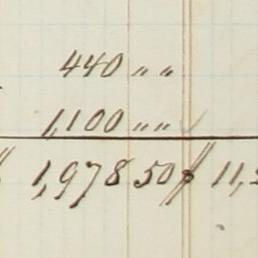 440 " "
1,100 " "
1,978 50 11,